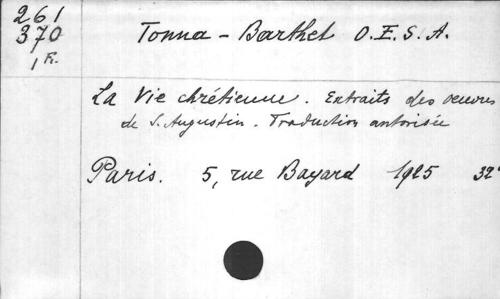 261
370
1 R.
Tonna - Barthet O.E.S.A.
La Vie chrétienne. Extraits des oeuvres
de S. Augustin. Traduction autorisée
Paris. 5, rue Bayard 1925 32°